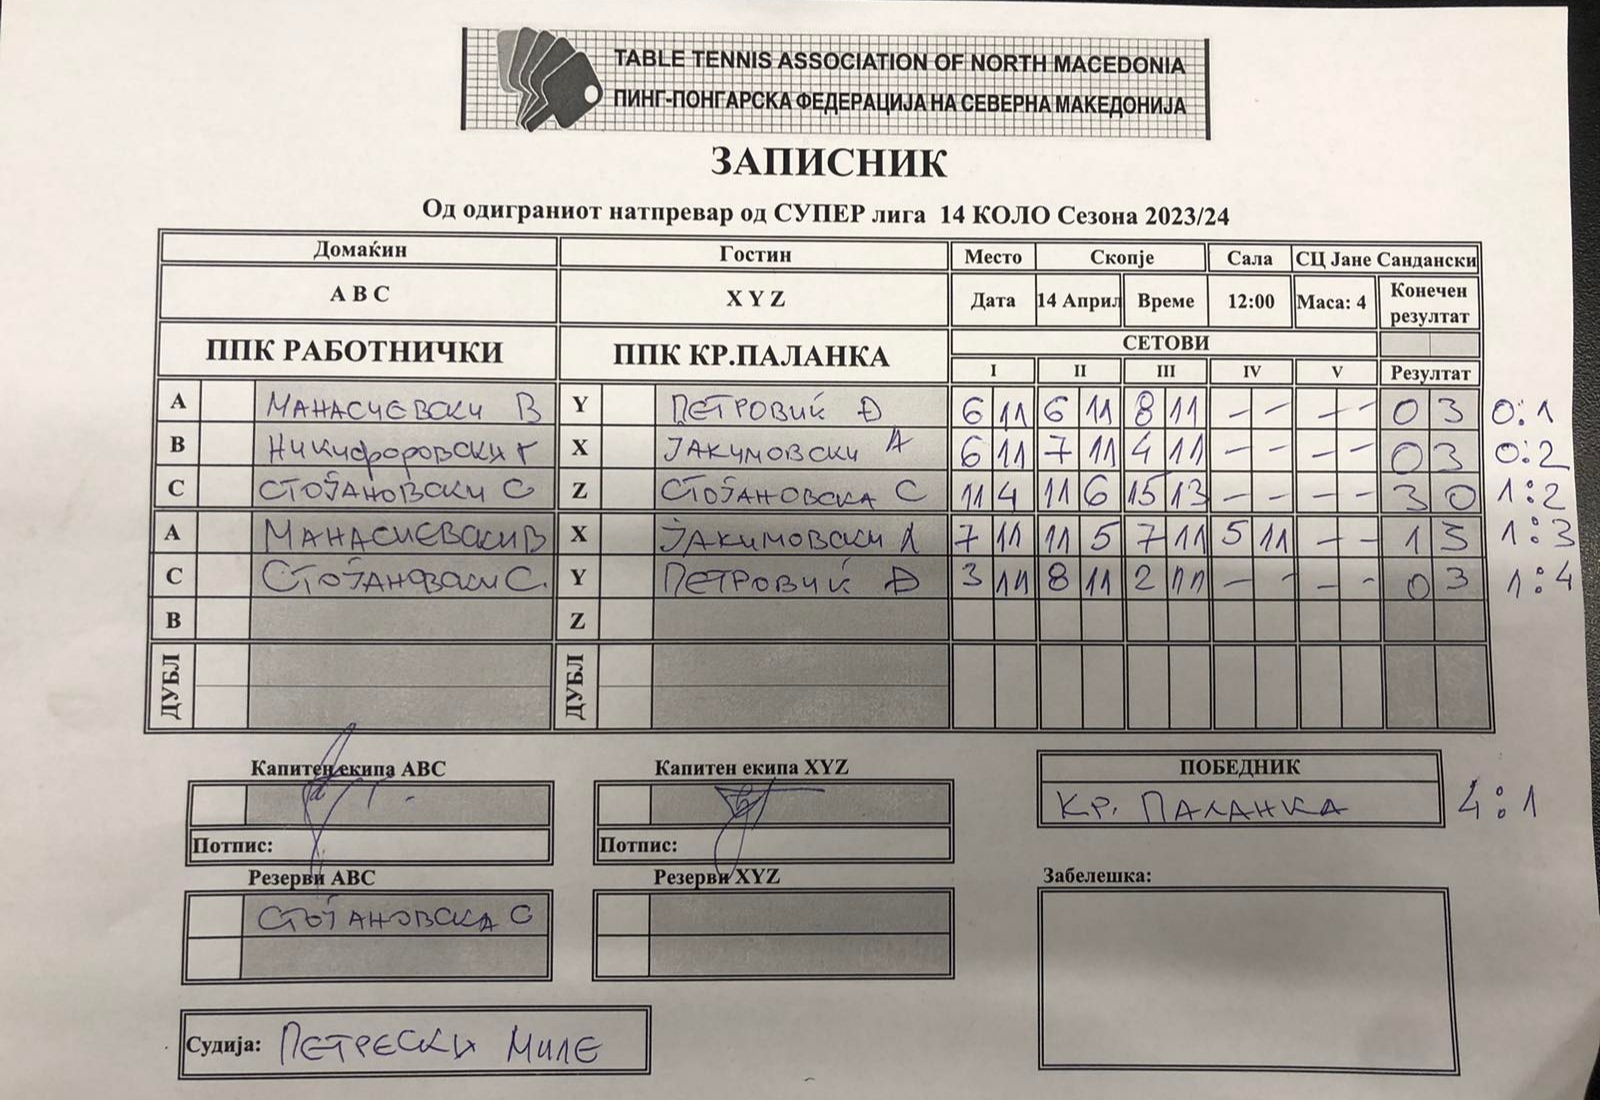 TABLE TENNIS ASSOCIATION OF NORTH MACEDONIA
ПИНГ-ПОНГАРСКА ФЕДЕРАЦИЈА НА СЕВЕРНА МАКЕДОНИЈА
ЗАПИСНИК
Од одиграниот натпревар од СУПЕР лига 14 КОЛО Сезона 2023/24
Домаќин Гостин Место Скопје Сала СЦ Јане Сандански
A B C X Y Z Дата 14 Април Време 12:00 Маса: 4 Конечен резултат
ППК РАБОТНИЧКИ ППК КР.ПАЛАНКА СЕТОВИ
I II III IV V Резултат
A МАНАСИЕВСКИ В Y ПЕТРОВИЌ Đ 6 11 6 11 8 11 - - - - 0 3 0:1
B НИКИФОРОВСКИ Г X ЈАКИМОВСКИ А 6 11 7 11 4 11 - - - - 0 3 0:2
C СТОЈАНОВСКИ С Z СТОЈАНОВСКА С 11 4 11 6 15 13 - - - - 3 0 1:2
A МАНАСИЕВСКИ В X ЈАКИМОВСКИ А 7 11 11 5 7 11 5 11 - - 1 3 1:3
C СТОЈАНОВСКИ С. Y ПЕТРОВИЌ Đ 3 11 8 11 2 11 - - - - 0 3 1:4
B Z
ДУБЛ ДУБЛ
Капитен екипа ABC Капитен екипа XYZ ПОБЕДНИК
КР. ПАЛАНКА 4:1
Потпис: Потпис:
Резерви ABC Резерви XYZ Забелешка:
СТОЈАНОВСКА С
Судија: ПЕТРЕСКИ МИЛЕ